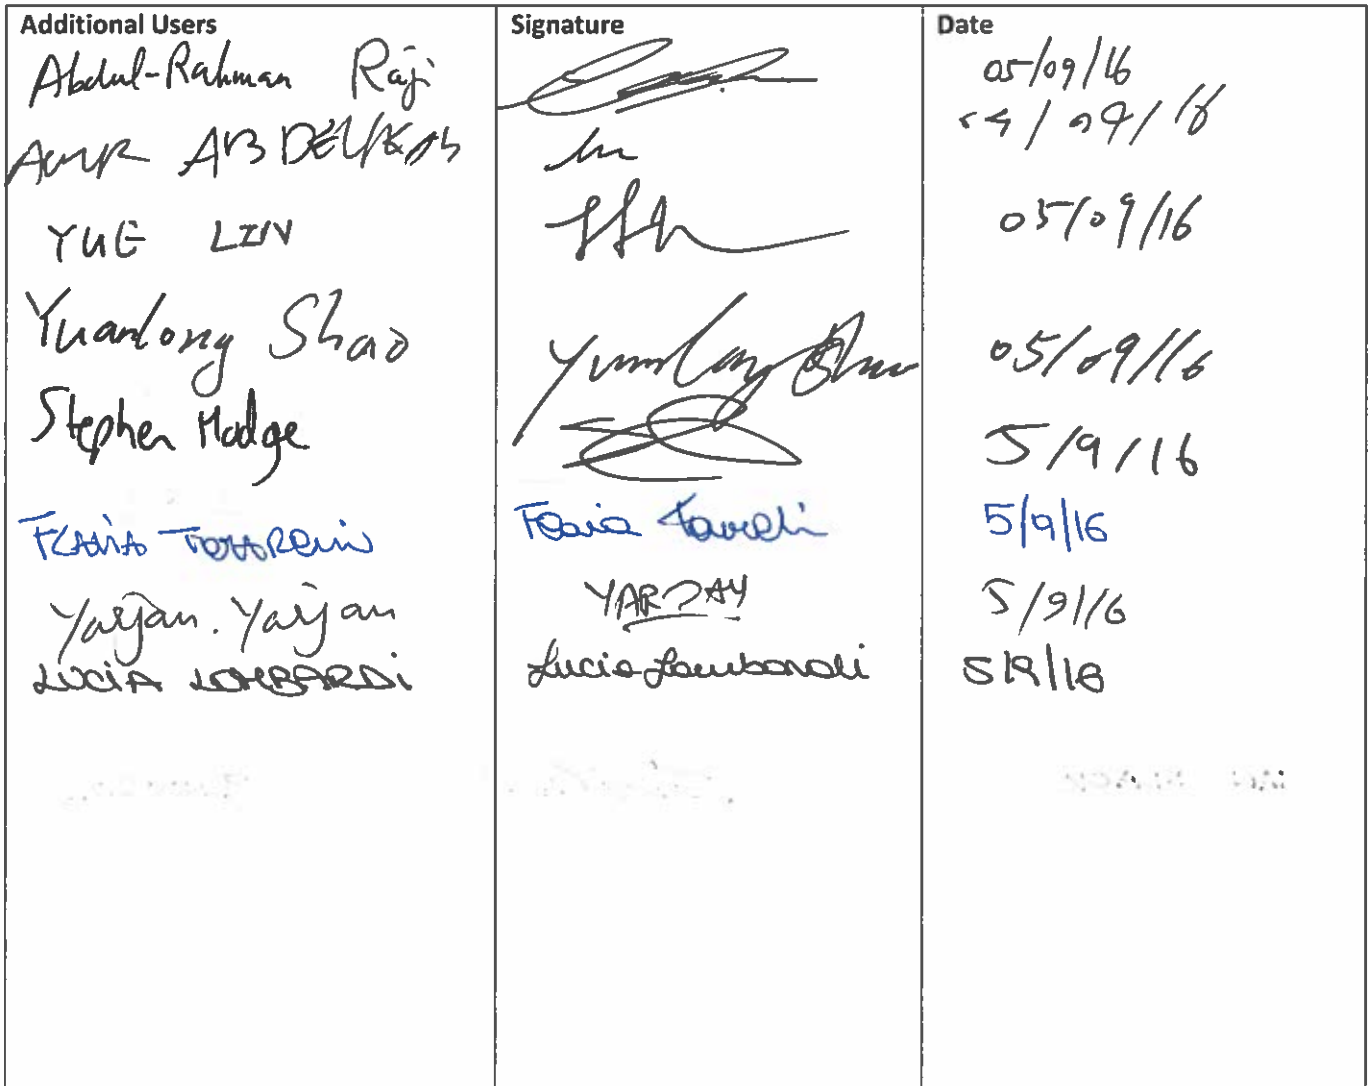 Additional Users Signature Date
Abdul-Rahman Raji 05/09/16
AMR /09/16
YUE LIN 05/09/16
Yuanlong Shao Yuanlong Shao 05/09/16
Stephen Hodge 5/9/16
FLAVIA Flavia 5/9/16
Yarjan. Yarjan YARJAN 5/9/16
LUCIA LOMBARDI Lucia Lombardi 5/9/16